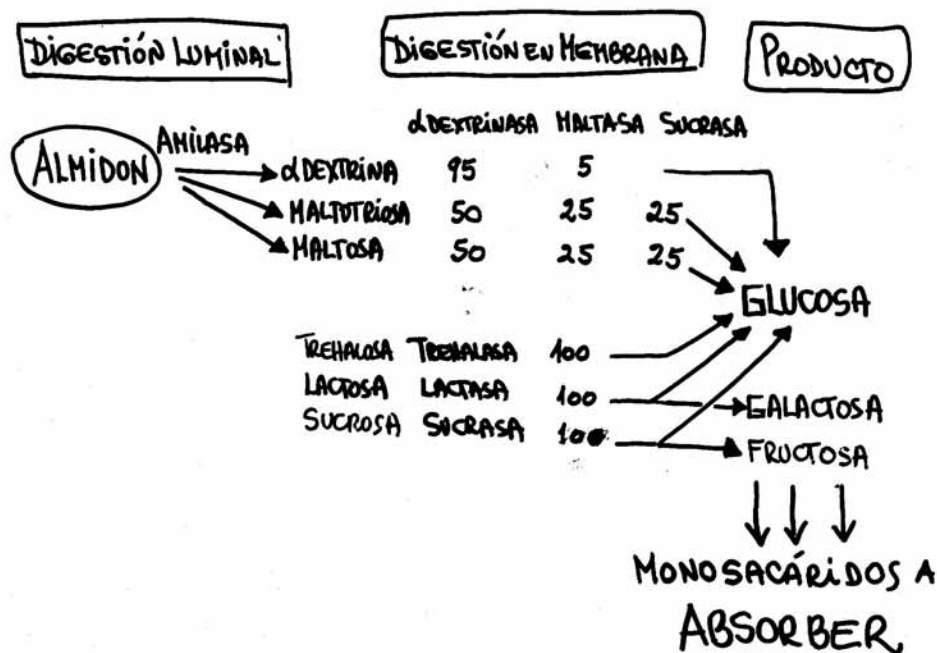 DIGESTIÓN LUMINAL DIGESTIÓN EN MEMBRANA PRODUCTO
αDEXTRINASA MALTASA SUCRASA
ALMIDON AMILASA αDEXTRINA 95 5
MALTOTRIOSA 50 25 25
MALTOSA 50 25 25
GLUCOSA
TREHALOSA TREHALASA 100
LACTOSA LACTASA 100 GALACTOSA
SUCROSA SUCRASA 100 FRUCTOSA
MONOSACÁRIDOS A
ABSORBER